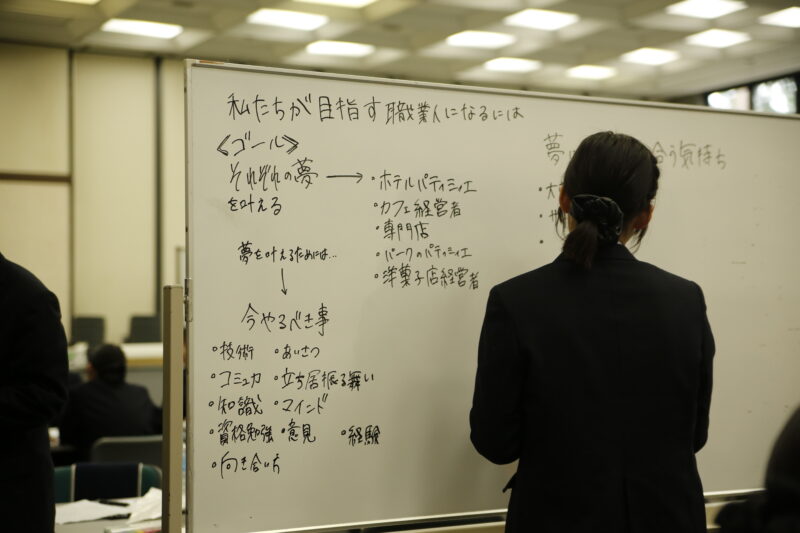 私たちが目指す職業人になるには
《ゴール》
それぞれの夢 → ・ホテルパティシィエ
を叶える
・カフェ経営者
・専門店
・パークのパティシィエ
・洋菓子店経営者
夢を叶えるためには…
↓
今やるべき事
・技術 ・あいさつ
・コミュ力 ・立ち居振る舞い
・知識 ・マインド
・資格勉強 ・意見 ・経験
・向き合い方
夢
合う気持ち